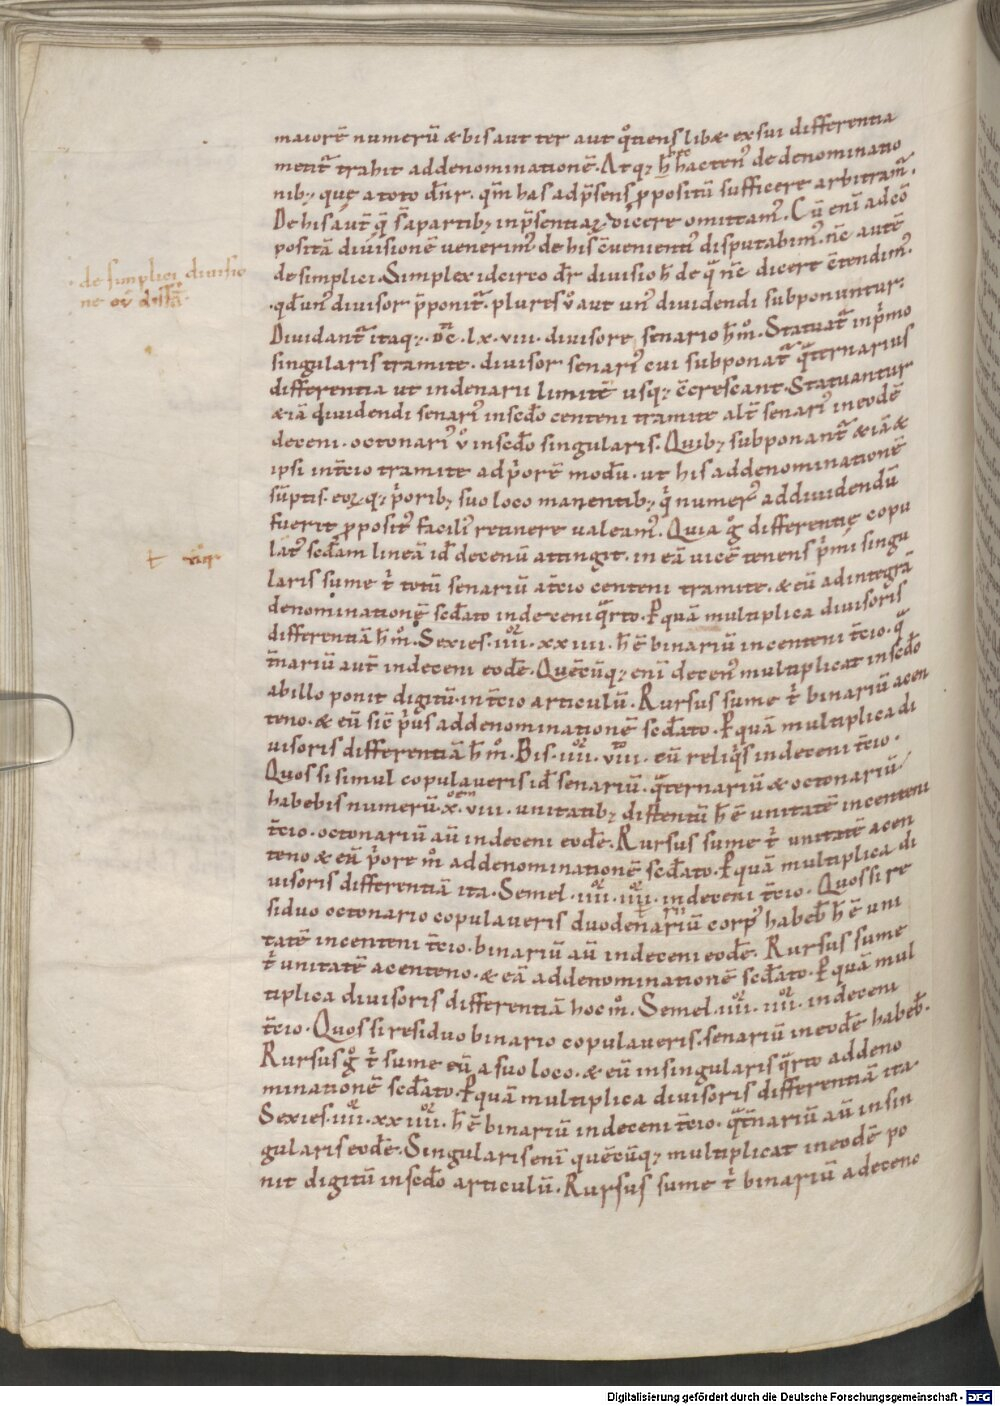 maiorē numerū & bis aut ter aut q̊tiens libæ ex sui differentia
metit̃ trahit addenominationē. Atq; hactenꝰ de denominatio
nib; quę a toto dñr. qm̄ has ad p̄sens ꝓpositū sufficere arbitram̃.
De his aut̃ q̃ s̄ a partib; in p̄sentia dicere omittam̃. Cū eni adeō
positā divisionē venerim̃ de his c̄venientꝰ disputabim̃. nc̄ autē
de simplici. Simplex idcirco dr̄ divisio h̄ de q̃ nc̄ dicere c̄tendim̃.
qd̄ unꝰ divisor p̄ponit̃. plures v̊ aut unꝰ dividendi subponuntur.
de simplici divisio
ne
Dividant̃ itaq;. Dc̄. lx. viii. divisore senario h̄ m̊. Statuat̃ in p̄mo
singularis tramite. divisor senariꝰ cui subponat̃ q̃ternarius
differentia ut in denarii limitē usq; c̄crescant. Statuantur
& iā dividendi senariꝰ in scd̄o centeni tramite alt̃ senariꝰ in eodē
deceni. octonariꝰ v̊ in scd̄o singularis. Quib; subponant̃ & iā &
ipsi in t̄cio tramite ad p̄orē modū. ut his addenominationē
sūptis. eoꝝq; p̄orib; suo loco manentib; q̇ numerꝰ ad dividendū
fuerit ꝓpositꝰ faciliꝰ retinere valeam̃. Quia g̊ differentię copu
lātꝰ scd̄am lineā id̄ decenū attingit. in eā vicē tenens p̄mi singu
laris sume t̄ totū senariū a t̄cio centeni tramite. & eū ad integrā
denominationē scd̄ato in deceni q̃rto. Pquā multiplica divisoris
differentiā h̄ m̊. Sexies. iiii. xx iiii. h̄ ē binariū in centeni t̄cio. q̃
t̄nariū aut̃ in deceni eodē. Quęcūq; eni decenꝰ multiplicat in scd̄o
ab illo ponit digitū. in t̄cio articulū. Rursus sume t̄ binariū a cen
teno. & eū sic p̄us addenominationē scd̄ato. Pquā multiplica di
visoris differentiā h̄ m̊. Bis. iiii. viii. cū reliq̇s in deceni t̄cio.
Quos si simul copulaveris id̄ senariū. q̃ternariū & octonariū
habebis numerū. x. viii. unitatib; distentū h̄ ē unitatē in centeni
t̄cio. octonariū aū in deceni eodē. Rursus sume t̄ unitatē a cen
teno & eū p̄ore m̊ addenominationē scd̄ato. Pquā multiplica di
visoris differentiā ita. Semel. iiii. iiii. in deceni t̄cio. Quos si re
siduo octonario copulaveris duodenariū corpꝰ habeb̄ h̄ ē uni
tatē in centeni t̄cio. binariū aū in deceni eodē. Rursus sume
t̄ unitatē a centeno. & eā addenominationē scd̄ato. Pquā mul
tiplica divisoris differentiā hoc m̊. Semel. iiii. iiii. in deceni
t̄cio. Quos si residuo binario copulaveris. senariū in eodē habeb̄.
Rursus g̊ t̄ sume eū a suo loco. & eū in singularis q̃rto addeno
minationē scd̄ato. Pquā multiplica divisoris differentiā ita.
Sexies. iiii. xx iiii. h̄ ē binariū in deceni t̄cio. q̃t̄nariū aū in sin
gularis eodē. Singularis eni quęcūq; multiplicat in eodē po
nit digitū in scd̄o articulū. Rursus sume t̄ binariū a deceno
Digitalisierung gefördert durch die Deutsche Forschungsgemeinschaft - DFG